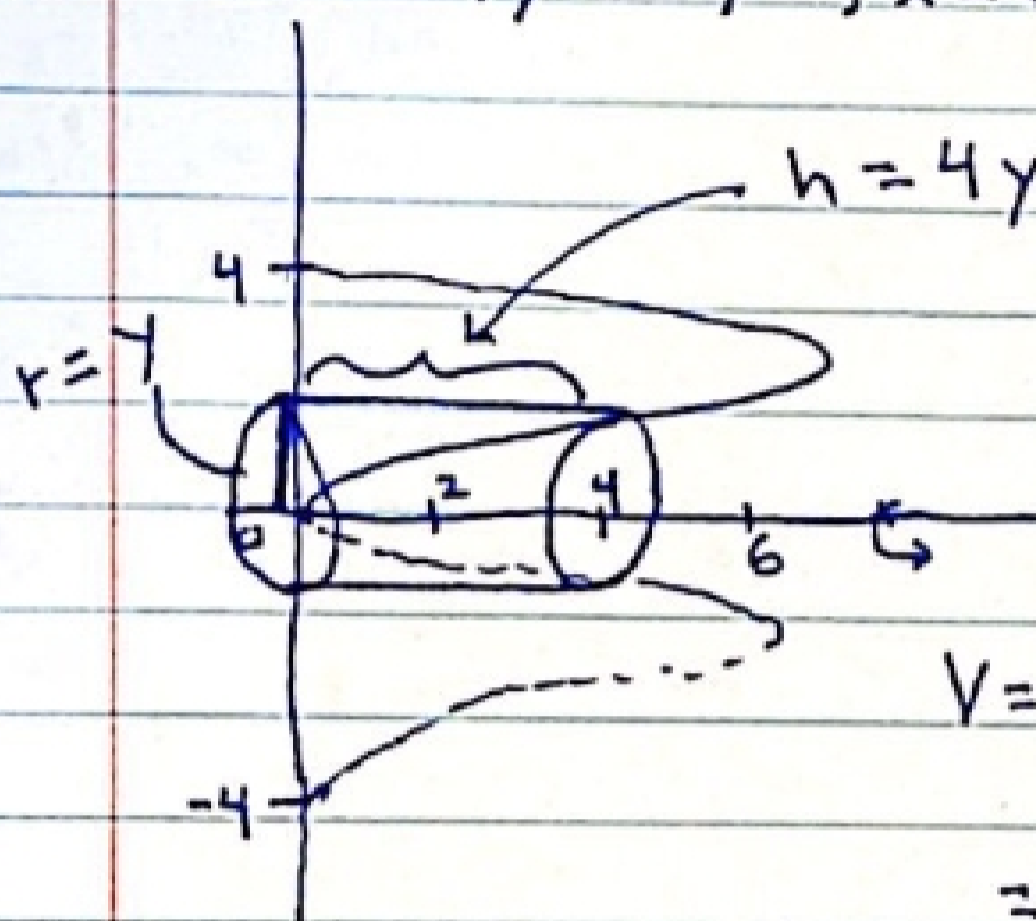 h = 4y
4
r = y
2
4
0
6
V =
-4
=